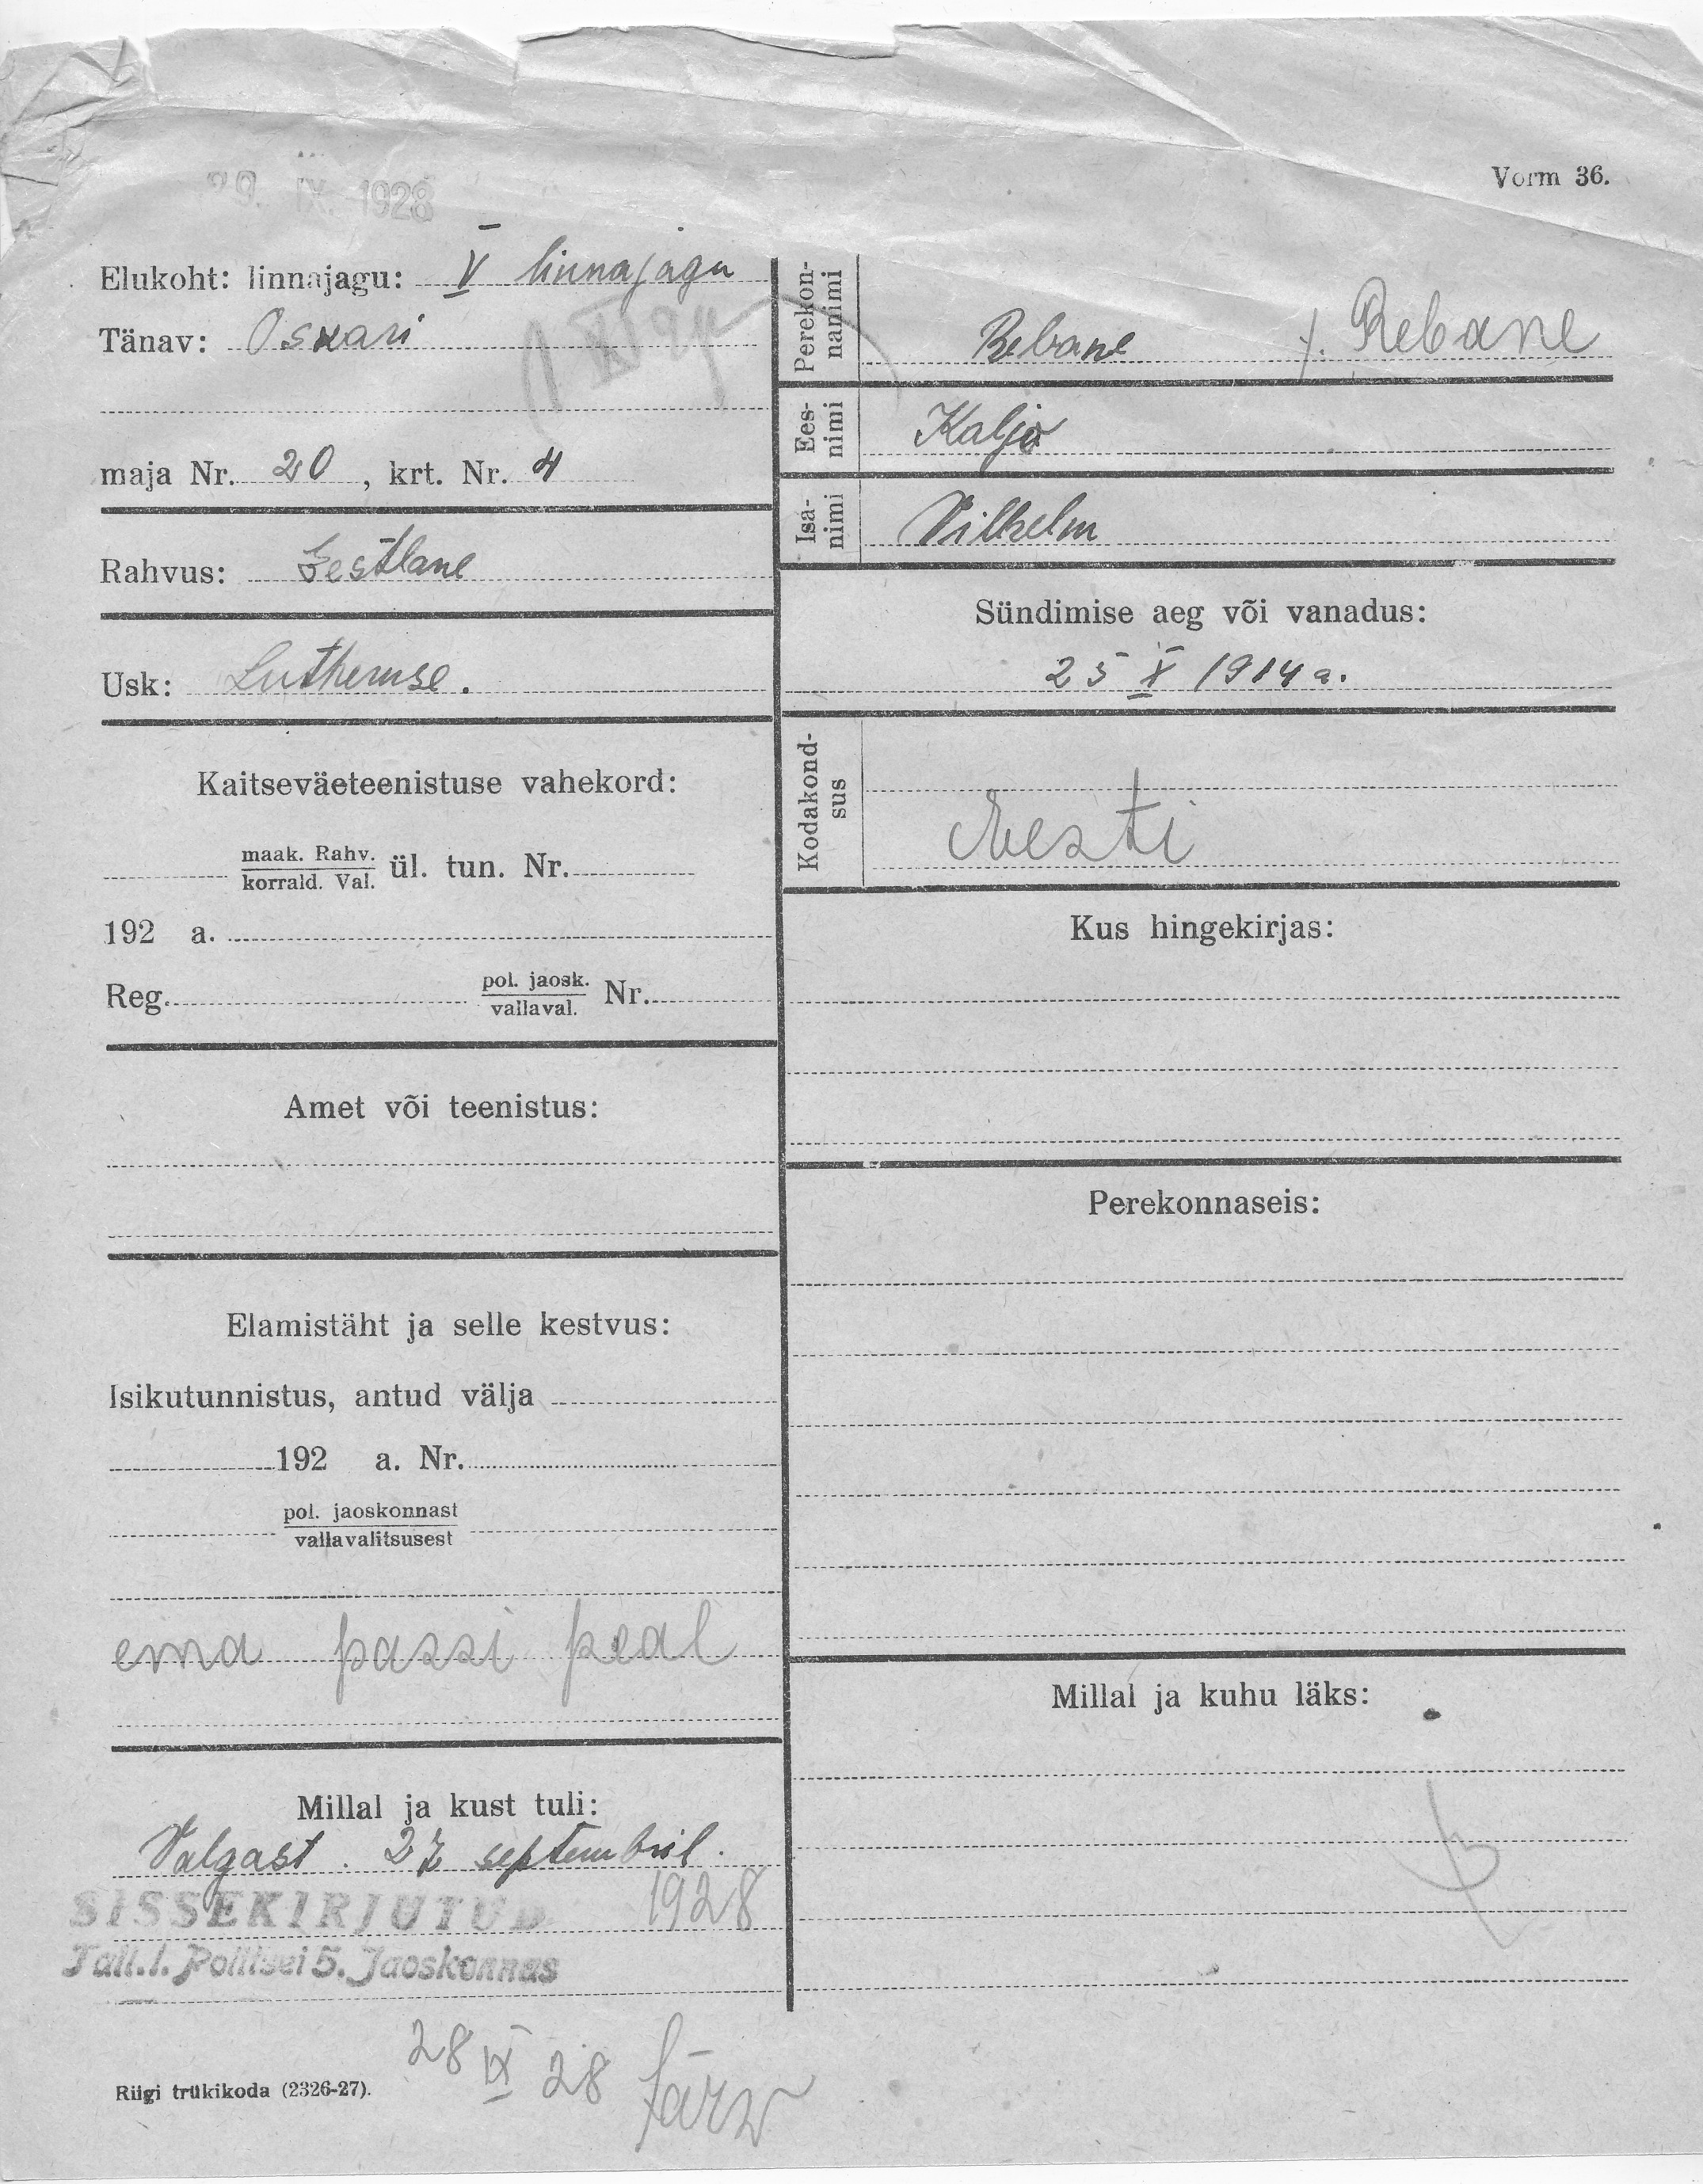 29. IX. 1928
Vorm 36.
Elukoht: linnajagu: V linnajagu
Tänav: Oskari
maja Nr. 20, krt. Nr. 4
Rahvus: Eestlane
Usk: Lutheruse.
Kaitseväeteenistuse vahekord:
maak. Rahv.
korrald. Val.
ül. tun. Nr.
192 a.
Reg. pol. jaosk. Nr.
vallaval.
Amet või teenistus:
Elamistäht ja selle kestvus:
Isikutunnistus, antud välja
192 a. Nr.
pol. jaoskonnast
vallavalitsusest
ema passi peal
Millal ja kust tuli:
Valgast. 27 septembril.
1928
SISSEKIRJUTUD
Tall. l. Politsei 5. Jaoskonnas
Perekon-
nanimi
Rebane Rebane
Ees-
nimi
Kaljo
Isa-
nimi
Vilhelm
Sündimise aeg või vanadus:
25 X 1914 a.
Kodakond-
sus
Eesti
Kus hingekirjas:
Perekonnaseis:
Millal ja kuhu läks:
28 IX 28
Riigi trükikoda (2326-27).